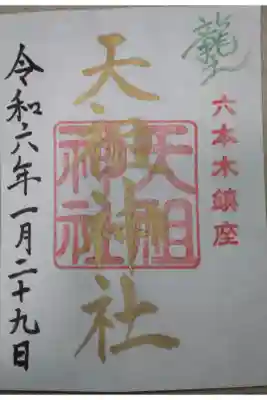 龍土
六本木鎮座
天祖神社
天祖神社
令和六年一月二十九日